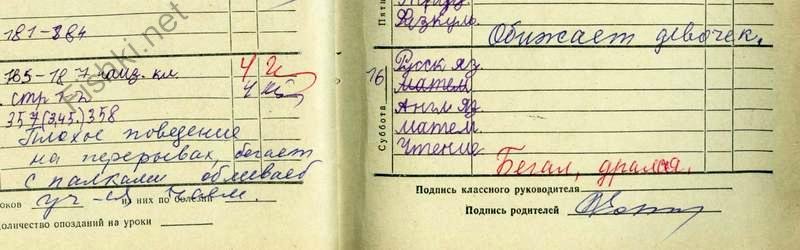 181-184
165-187 наиз. кл. 4
стр 4
357 (3,45.) 358
Плохое поведение
на перерывах, бегает
с палками обливает
уч-ся чаем.
роков из них по болезни
оличество опозданий на уроки
fishki.net
Пятн
Физкуль.
Обижает девочек.
Суббота
16
Русск яз.
Матем
Англ яз
Матем.
Чтение
Бегал, дрался.
Подпись классного руководителя
Подпись родителей